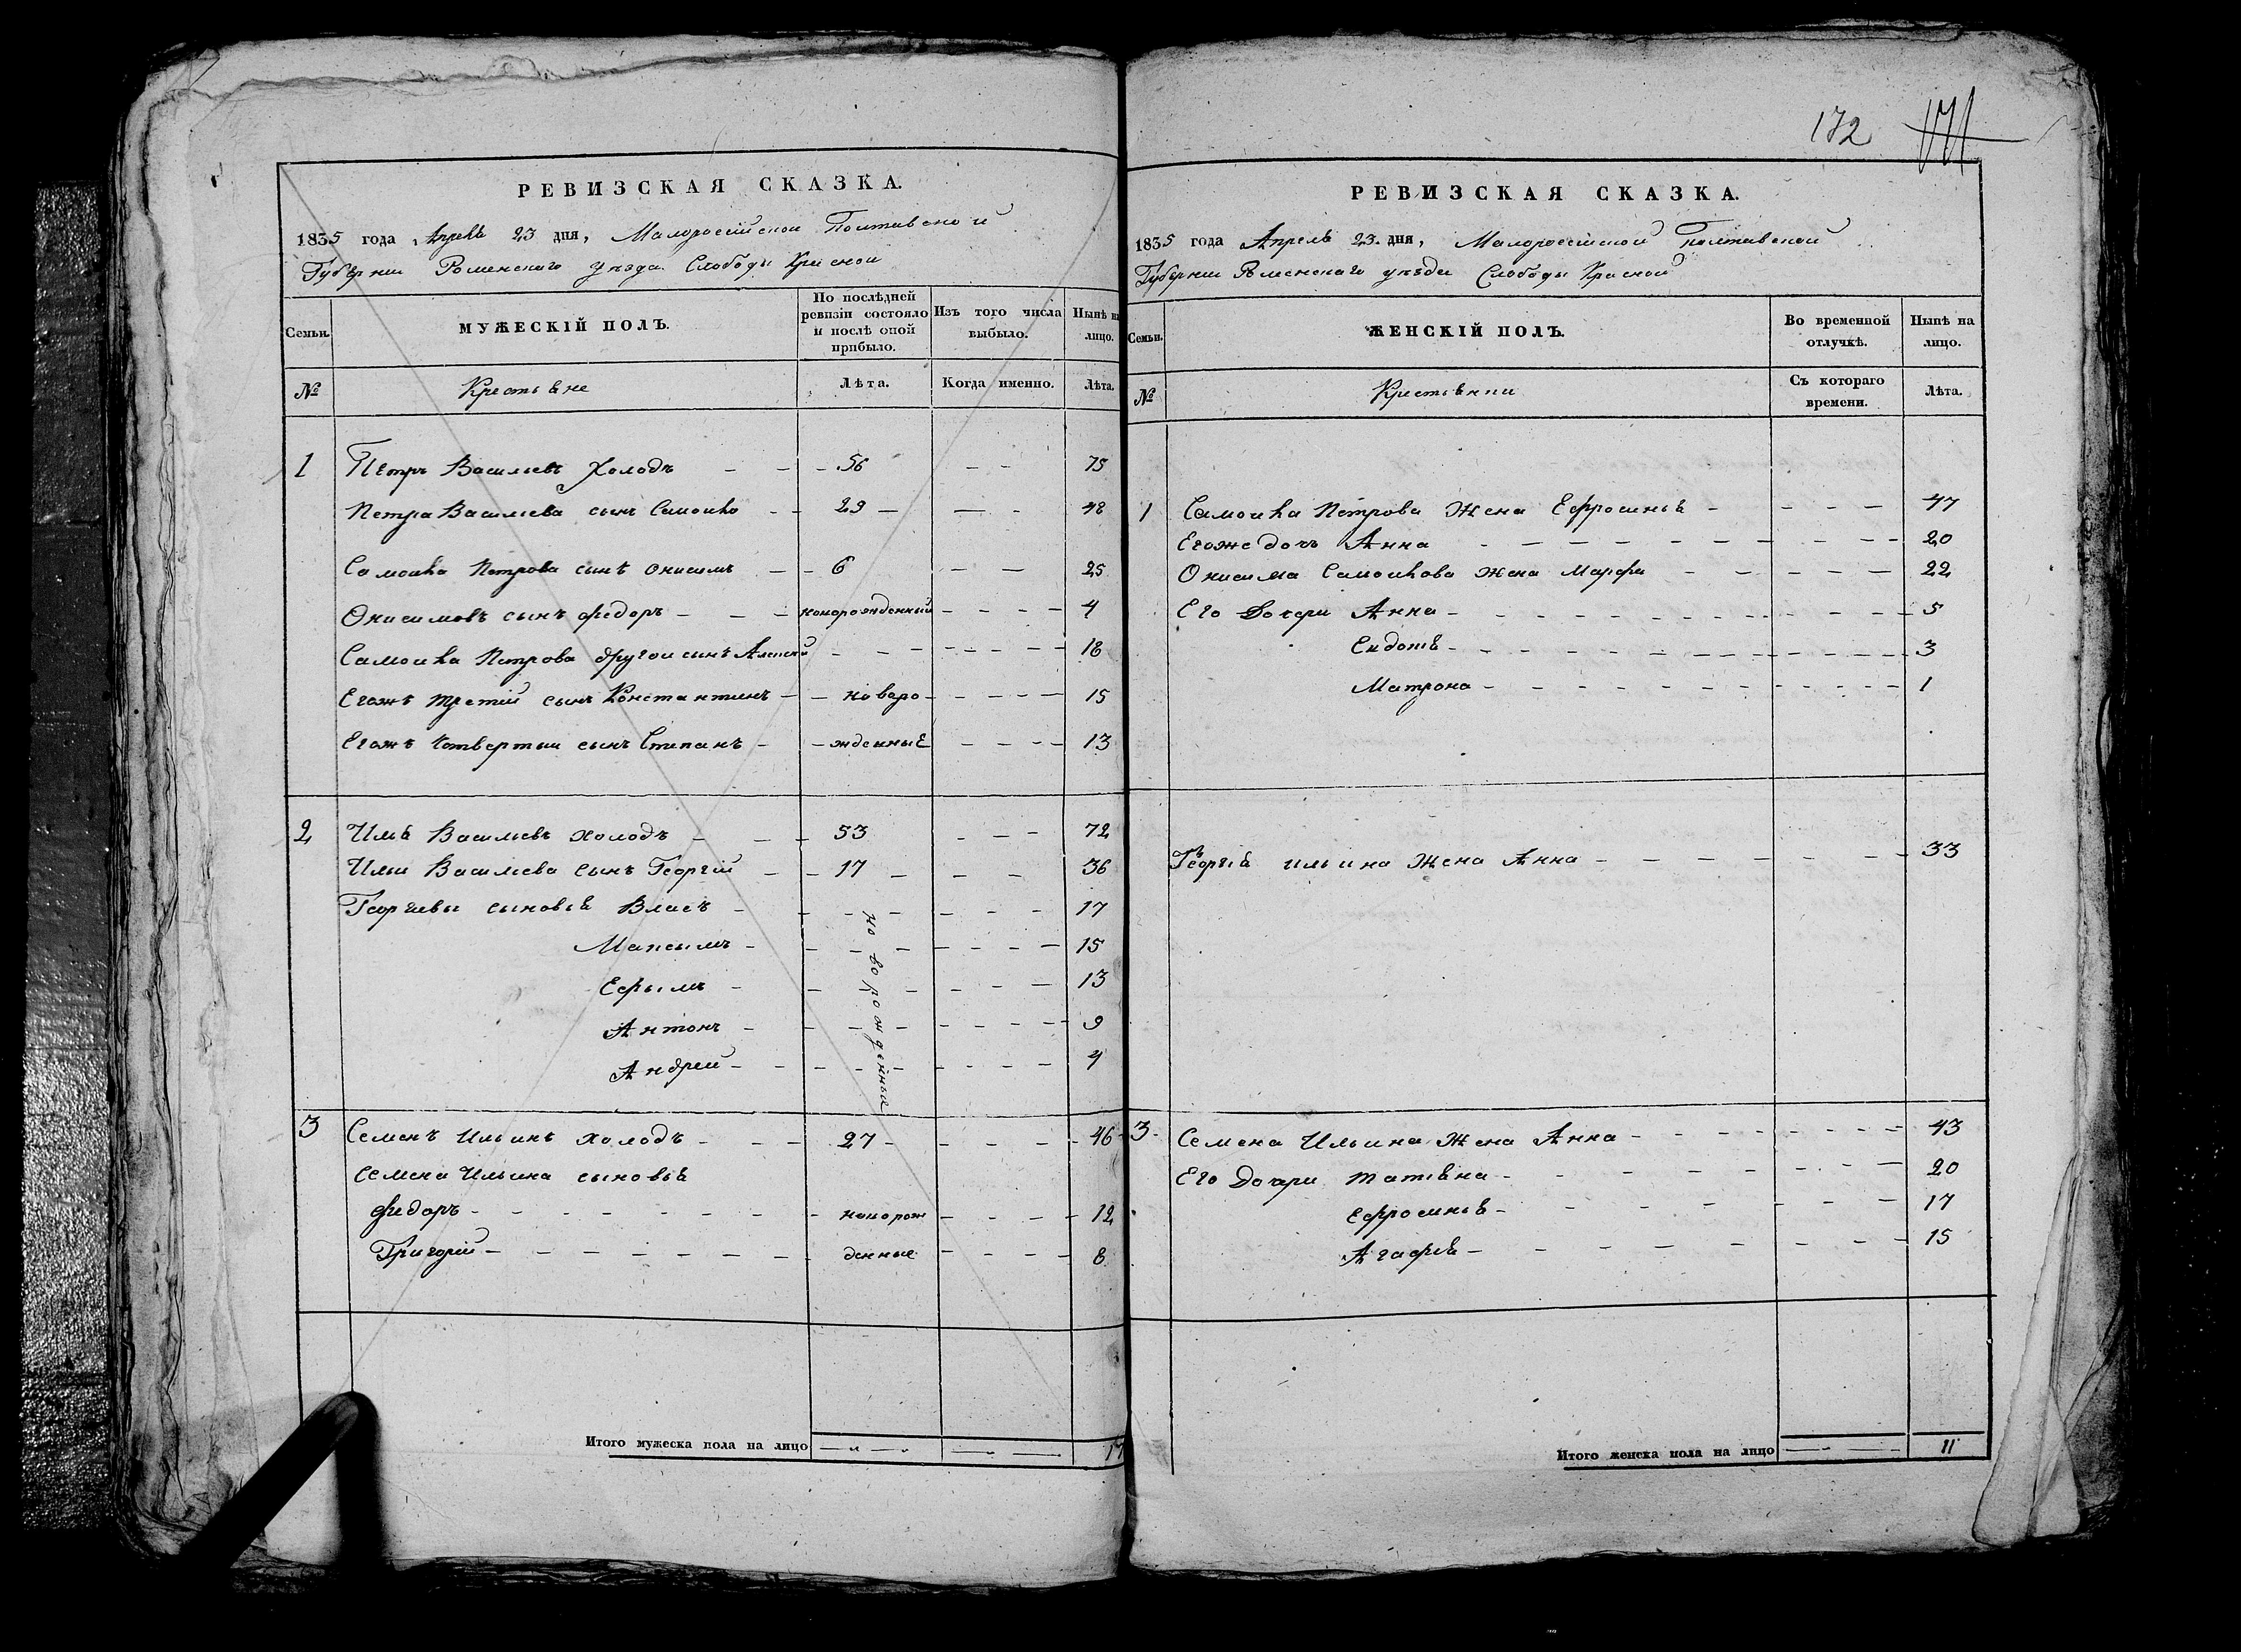 172 171
РЕВИЗСКАЯ СКАЗКА.
1835 года Апреля 23 дня, Малороссійской Полтавской
Губернии Роменскаго уезда Слободы Красной
Семьи.
МУЖЕСКІЙ ПОЛЪ.
По послѣдней ревизіи состояло и послѣ оной прибыло.
Изъ того числа выбыло.
Нынѣ на лицо.
№
Крестьяне
Лѣта.
Когда именно.
Лѣта.
1 Петръ Васильевъ Холодъ 56 75
Петра Васильева сынъ Самойло 29 48
Самойла Петрова сынъ Онисимъ 6 25
Онисимовъ сынъ Федоръ новорожденный 4
Самойла Петрова другой сынъ Алексей 18
Егожъ третій сынъ Константинъ новоро 15
Егожъ Четвертый сынъ Степанъ жденные 13
2 Илья Васильевъ Холодъ 53 72
Ильи Васильева сынъ Георгій 17 36
Георгиевы сыновья Власъ 17
Максымъ 15
Ефымъ 13
Антонъ 9
Андрей 4
новорожденные
3 Семенъ Ильинъ Холодъ 27 46
Семена Ильина сыновья
Федоръ новорож 12
Григорій денные 8
Итого мужеска пола на лицо 17
РЕВИЗСКАЯ СКАЗКА.
1835 года Апреля 23 дня, Малороссійской Полтавской
Губернии Роменскаго уезда Слободы Красной
Семьи.
ЖЕНСКІЙ ПОЛЪ.
Во временной отлучкѣ.
Нынѣ на лицо.
№
Крестьянки
Съ котораго времени.
Лѣта.
1 Самойла Петрова Жена Ефросинья 47
Егоже дочь Анна 20
Онисима Самойлова жена Марфа 22
Его Дочери Анна 5
Евдотя 3
Матрона 1
Георгія ильина Жена Анна 33
3 Семена Ильина Жена Анна 43
Его Дочери татяна 20
Ефросинья 17
Агафия 15
Итого женска пола на лицо 11